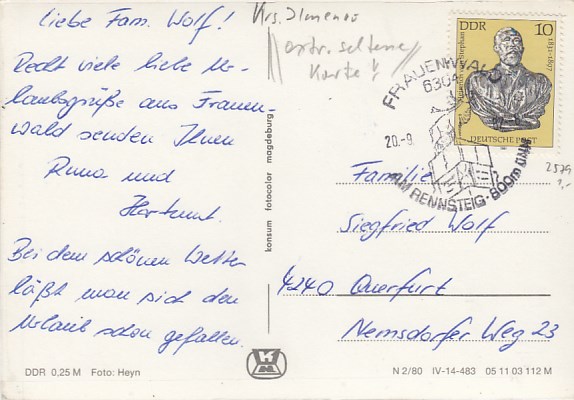 Liebe Fam. Wolf!
Recht viele liebe Ur-
laubsgrüße aus Frauen-
wald senden Ihnen
Runa und
Hartmut.
Bei dem schönen Wetter
läßt man sich den
Urlaub schon gefallen.
Krs. Ilmenau
extr. seltene
Karte!
DDR 10
1831-1897
DEUTSCHE POST
FRAUENWALD
6304
20.-9.
AM RENNSTEIG · 800m
2579
1,-
Familie
Siegfried Wolf
4240 Querfurt
Nemsdorfer Weg 23
konsum fotocolor magdeburg
DDR 0,25 M Foto: Heyn
N 2/80 IV-14-483 05 11 03 112 M